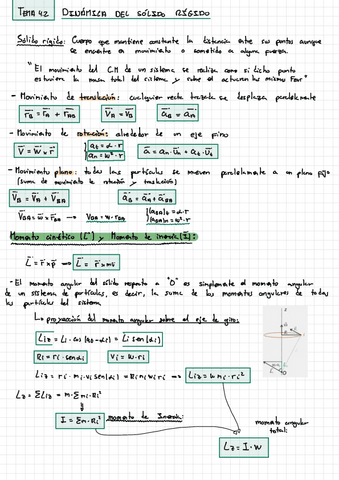 TEMA 42 DINÁMICA DEL SÓLIDO RÍGIDO
Sólido rígido: Cuerpo que mantiene constante la distancia entre sus puntos aunque
se encuentre en movimiento o sometido a alguna fuerza.
"El movimiento del C.M de un sistema se realiza como si dicho punto
estuviera la masa total del sistema y sobre él actuaran las mismas Fext"
- Movimiento de translación: cualquier recta trazada se desplaza paralelamente
r_B = r_A + r_BA V_A = V_B a_B = a_A
- Movimiento de rotación: alrededor de un eje fijo
V = w × r a_t = α · r a = a_n · u_n + a_t · u_t
a_n = w² · r
- Movimiento plano: todas las partículas se mueven paralelamente a un plano fijo
(suma de movimiento de rotación y traslación)
V_B = V_A + V_BA a_B = a_A + a_BA
V_BA = w × r_BA → V_BA = w · r_BA
Momento cinético (L) y Momento de inercia (I):
L = r × p → L = r × mv
- El momento angular del sólido respecto a "O" es simplemente el momento angular
de un sistema de partículas, es decir, la suma de los momentos angulares de todas
las partículas del sistema.
↳ proyección del momento angular sobre el eje de giro:
L_iz = L_i · cos (90-α_i) = L_i sen(α_i)
R_i = r_i · senα_i V_i = w · r_i
L_iz = r_i · m_i · v_i sen(α_i) = R_i m_i w r_i → L_iz = w m_i · r_i²
I = Σm · R_i² momento de Inercia:
momento angular
total:
L_z = I · w